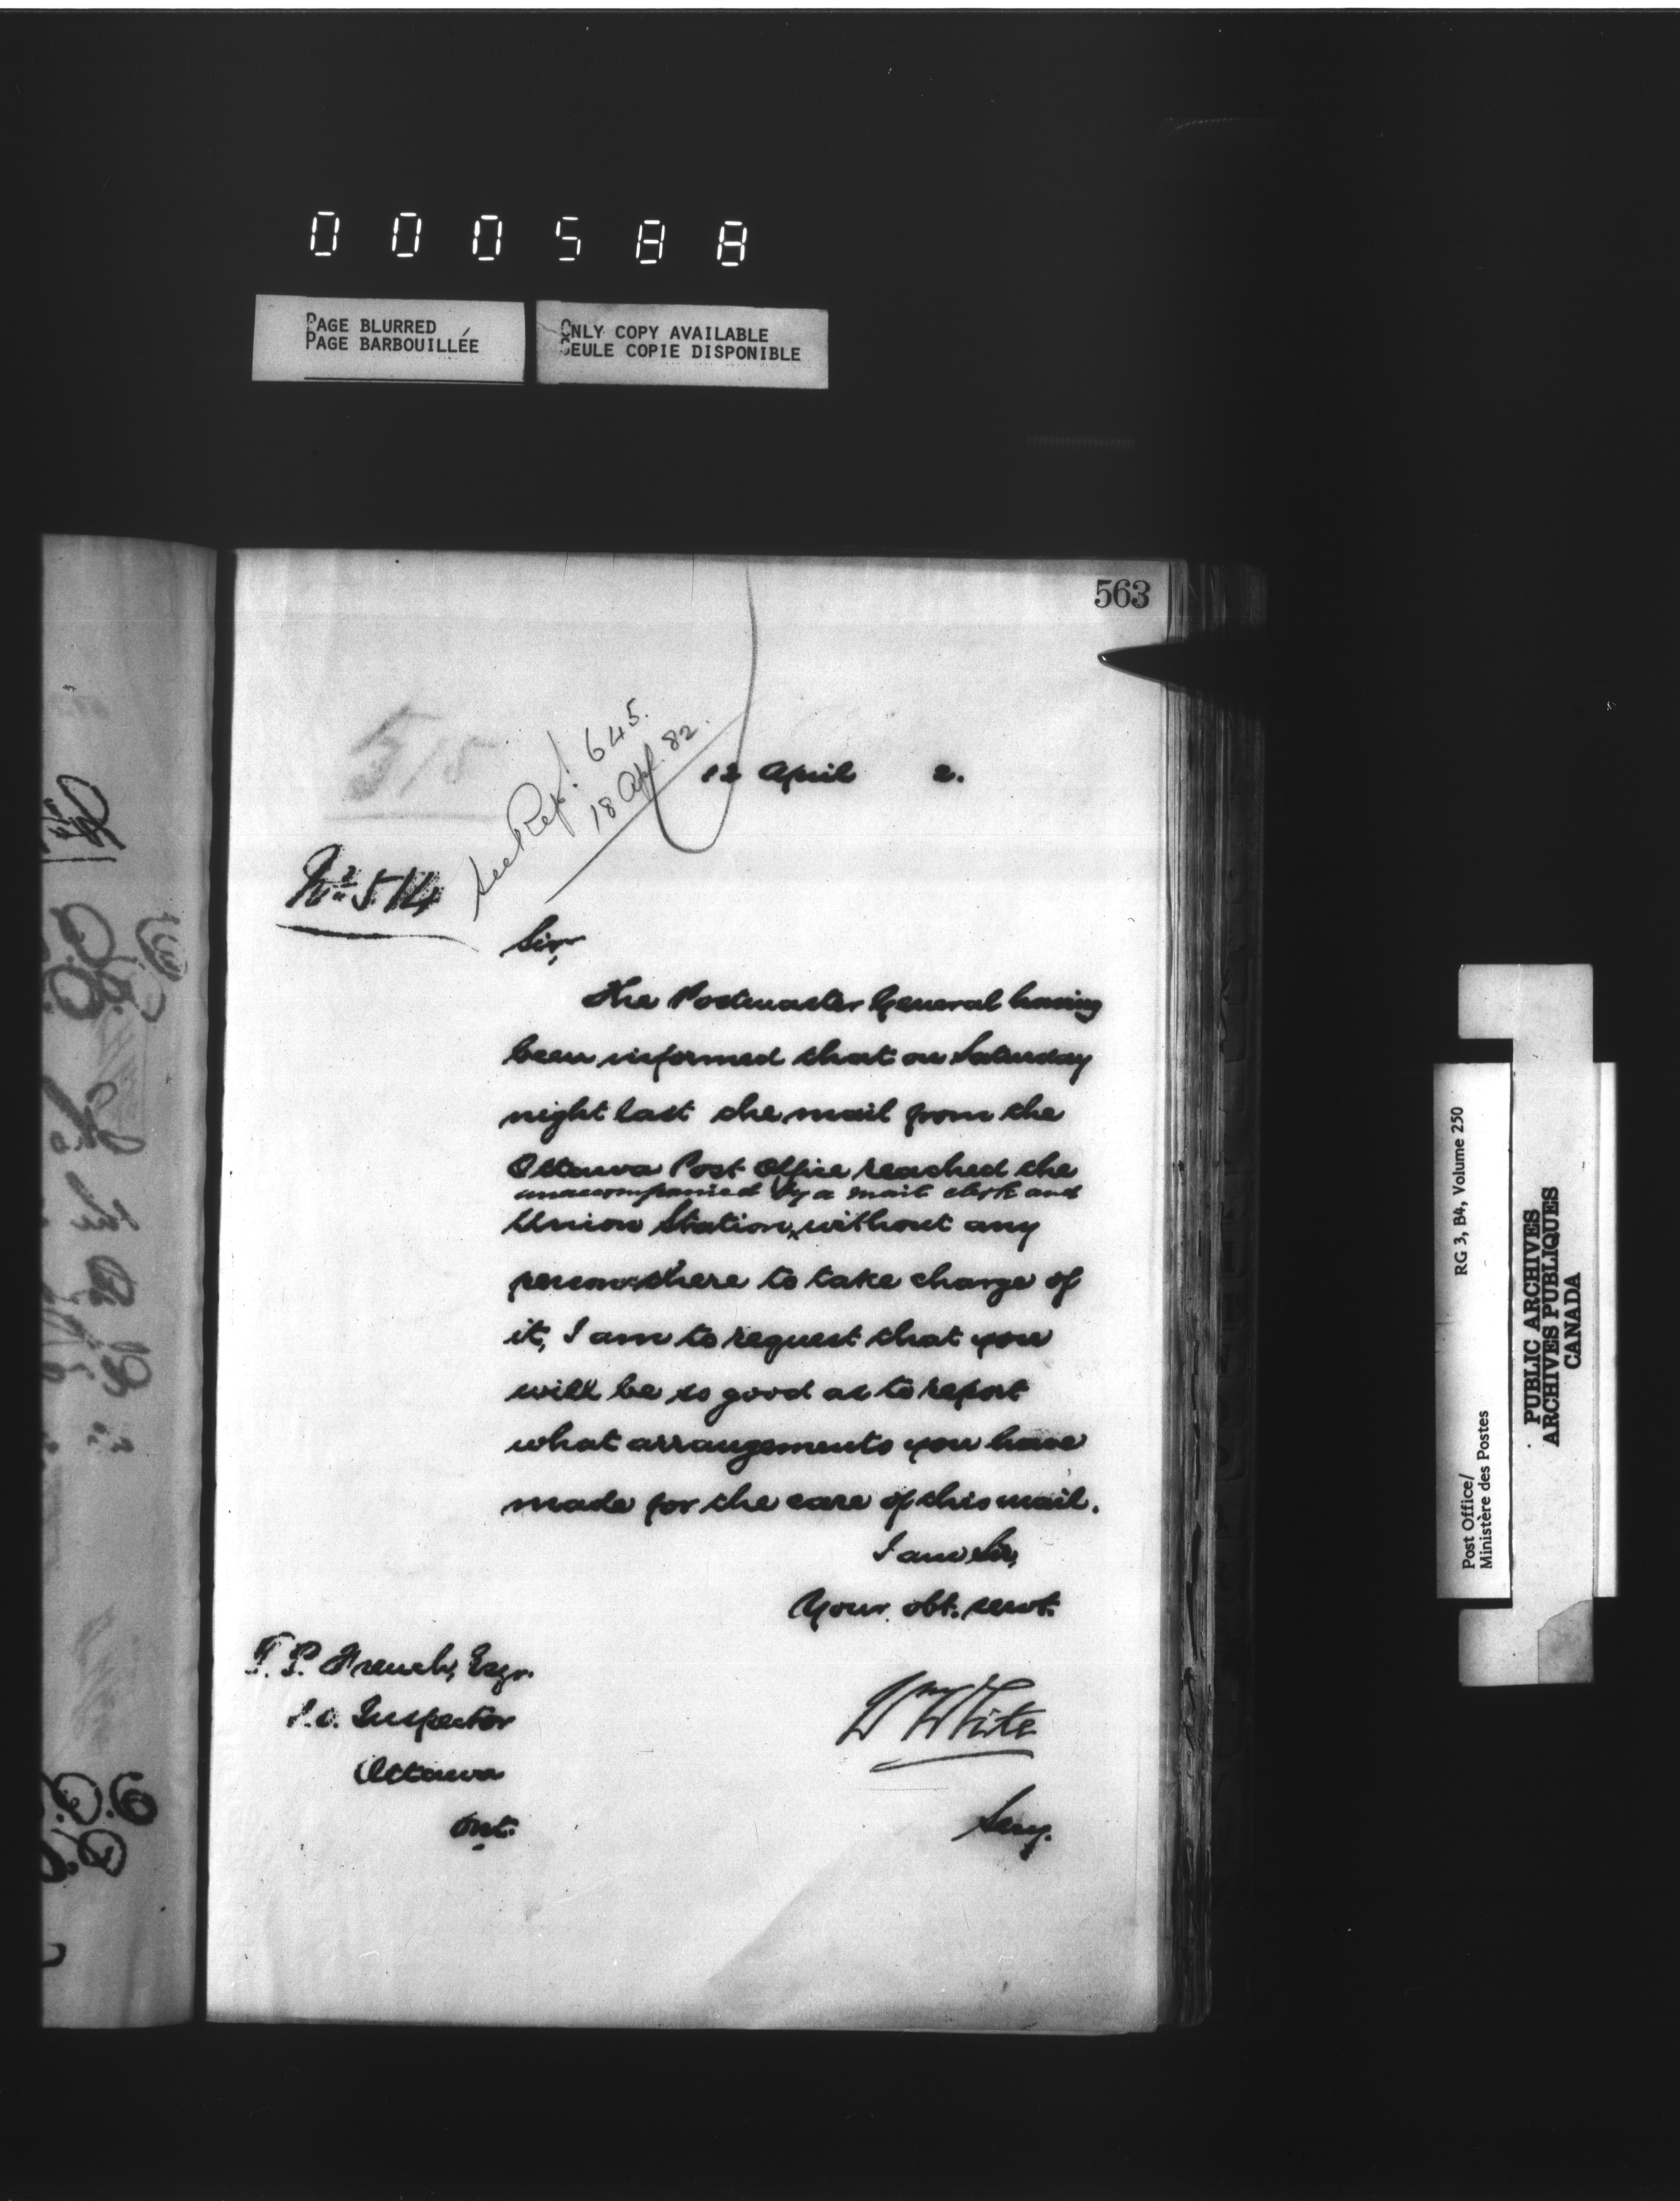 000588
PAGE BLURRED
PAGE BARBOUILLÉE
ONLY COPY AVAILABLE
SEULE COPIE DISPONIBLE
563
515
See Rep. 645.
18 Apl. 82.
12 April 2.
No. 514
Sir,
The Postmaster General having
been informed that on Saturday
night last the mail from the
Ottawa Post Office reached the
unaccompanied by a mail clerk and
Union Station, without any
person there to take charge of
it, I am to request that you
will be so good as to report
what arrangements you have
made for the care of this mail.
I am Sir,
Your obt. servt.
T. P. French, Esqr.
P.O. Inspector
Ottawa
Ont.
Wm White
Secy.
Post Office/
Ministère des Postes
RG 3, B4, Volume 250
PUBLIC ARCHIVES
ARCHIVES PUBLIQUES
CANADA